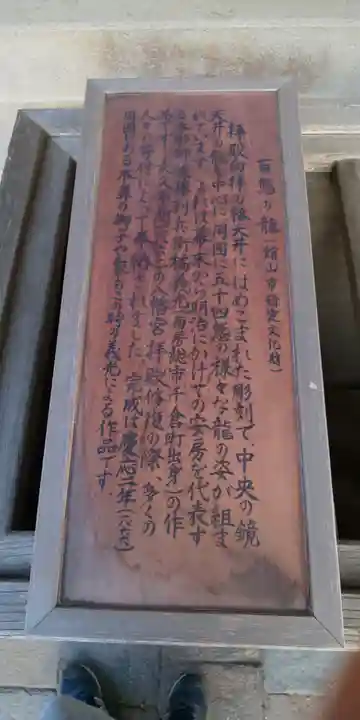 百態の龍(館山市指定文化財)
拝殿向拝の格天井にはめこまれた彫刻で、中央の鏡
天井の龍を中心に周囲に五十四態の様々な龍の姿が組ま
れています。これは幕末から明治にかけての安房を代表す
る彫刻師後藤利兵衛橘義光(南房総市千倉町出身)の作
です。文久
の八幡宮拝殿修復の際、多くの
人々の寄付によって奉納されました。完成は慶応二年(一八六六)
周囲にある
義光による作品です。